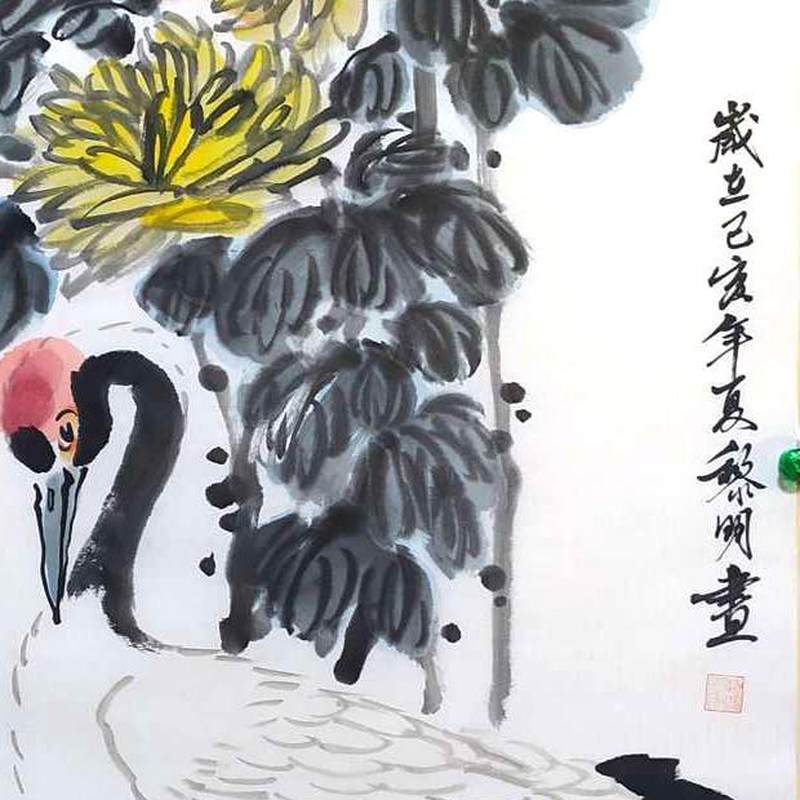 歲在己亥年夏黎明畫